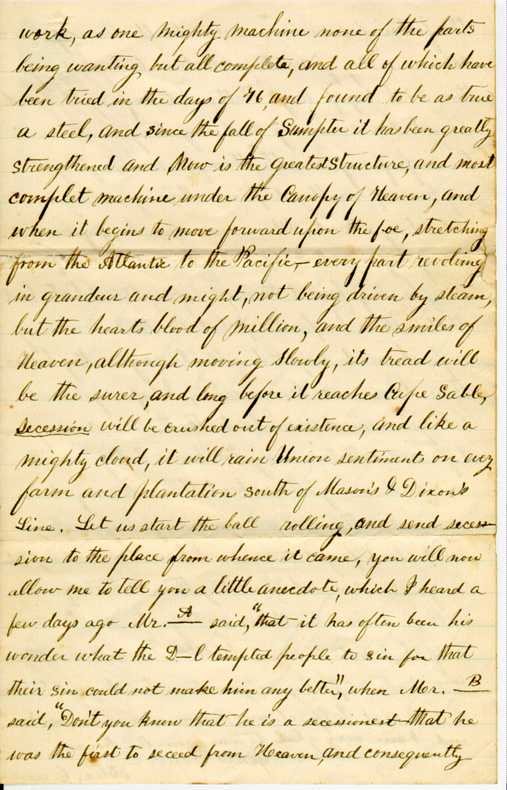 work, as one mighty machine none of the parts
being wanting but all complete, and all of which have
been tried in the days of 76, and found to be as true
a steel, and since the fall of Sumpter it has been greatly
strengthened and Now is the greatest structure, and most
complet machine under the Canopy of Heaven, and
when it begins to move forward upon the foe, stretching
from the Atlantic to the Pacific, – every part revolving
in grandeur and might, not being driven by steam,
but the hearts blood of million, and the smiles of
Heaven, although moving slowly, its tread will
be the surer, and long before it reaches Cape Sable,
Secession will be crushed out of existence, and like a
mighty cloud, it will rain Union sentiments on every
farm and plantation south of Mason's & Dixon's
Line. Let us start the ball rolling, and send seces-
sion to the place from whence it came, you will now
allow me to tell you a little anecdote, which I heard a
few days ago Mr. A said, "that it has often been his
wonder what the D–l tempted people to sin for that
their sin could not make him any better", when Mr. B
said, "Don't you know that he is a secessionest – that he
was the first to seceed from Heaven, and consequently